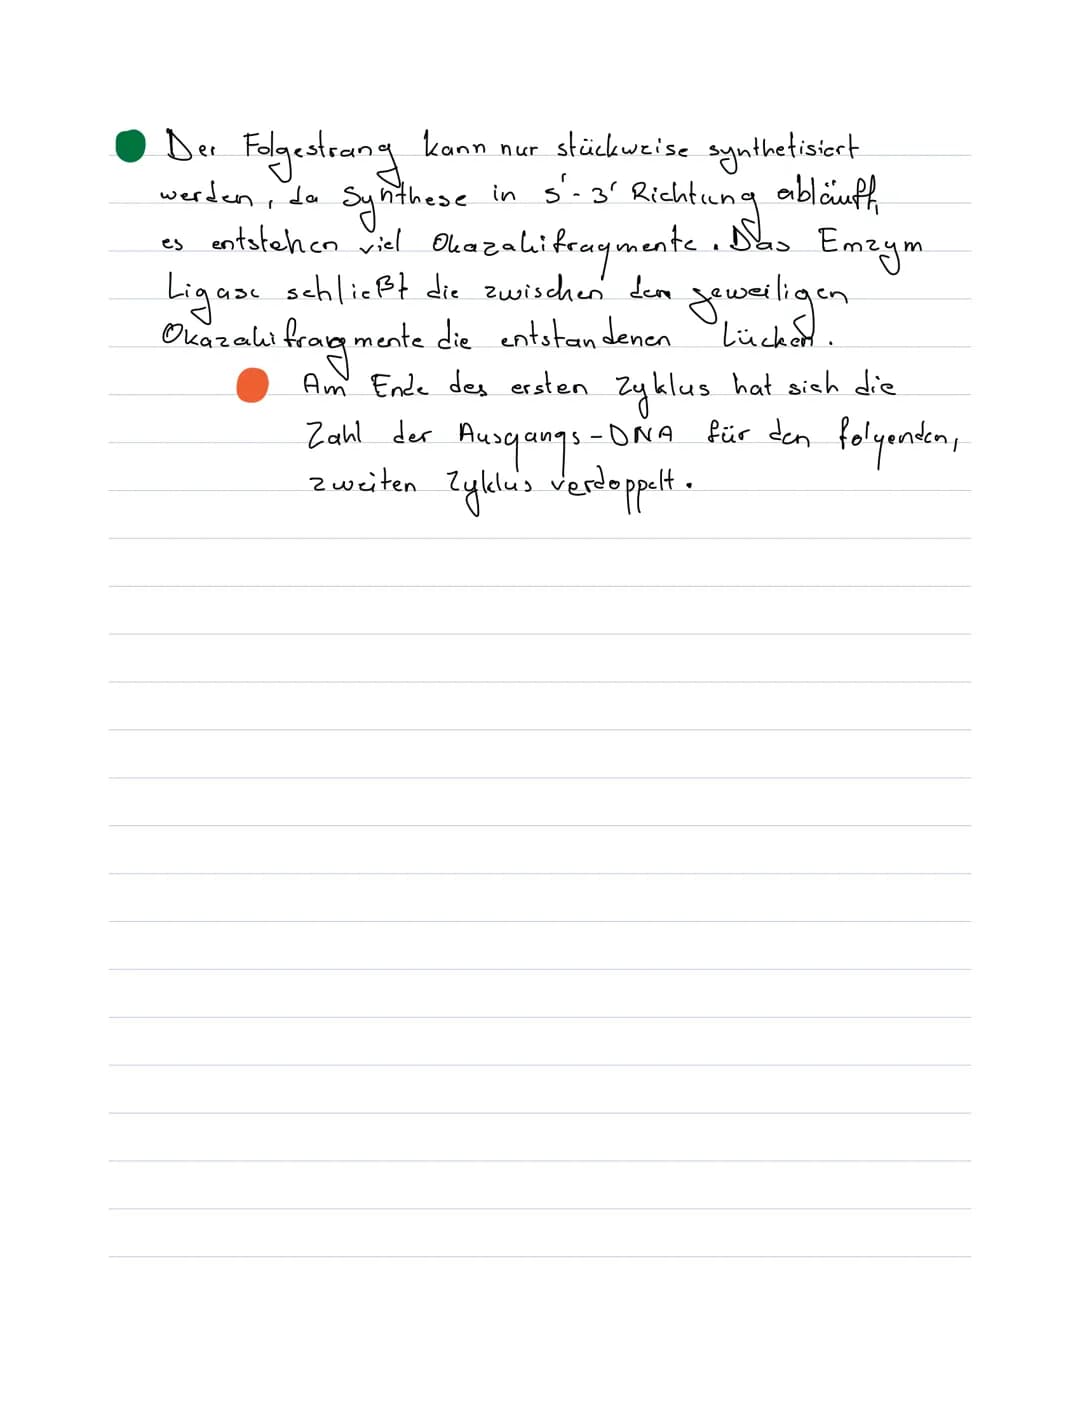 Der Folgestrang kann nur stückweise synthetisiert
werden, da Synthese in 5'-3' Richtung abläuft,
es entstehen viel Okazakifragmente. Das Emzym
Ligase schließt die zwischen den jeweiligen
Okazakifragmente die entstandenen Lücken.
Am Ende des ersten Zyklus hat sich die
Zahl der Ausgangs-DNA für den folgenden,
zweiten Zyklus verdoppelt.